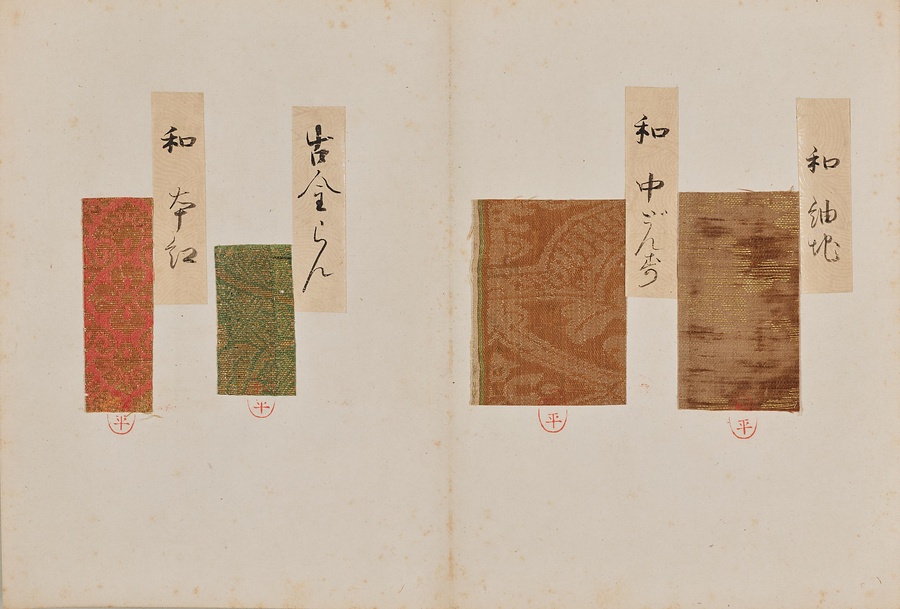 和 紬地
平
和 中どんす
平
古金らん
平
和 本紅
平